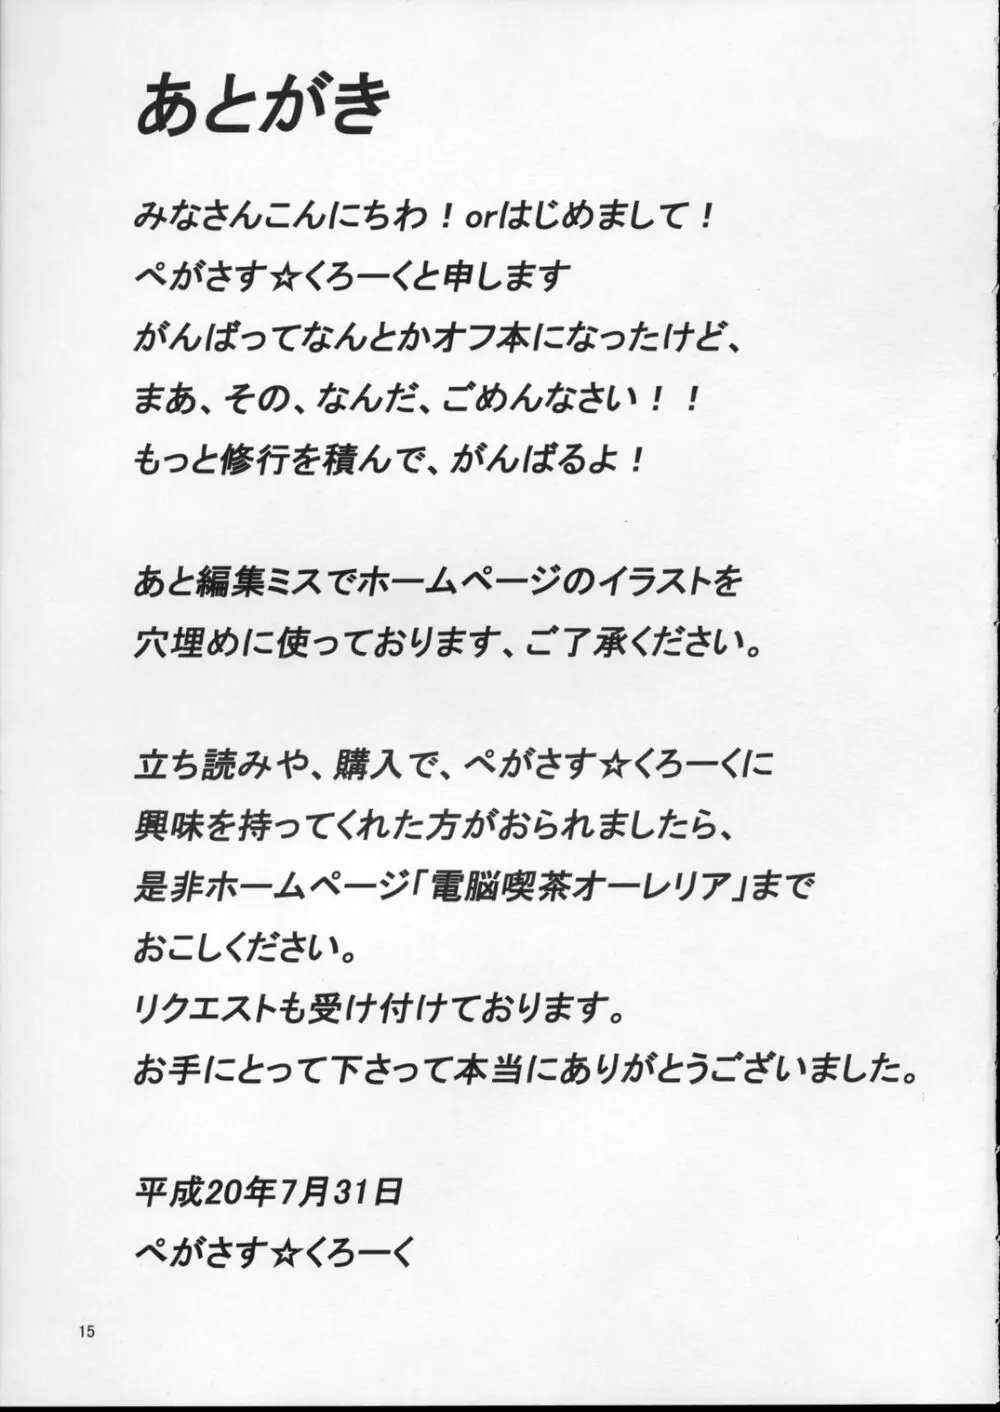 あとがき
みなさんこんにちわ！orはじめまして！
ぺがさす☆くろーくと申します
がんばってなんとかオフ本になったけど、
まあ、その、なんだ、ごめんなさい！！
もっと修行を積んで、がんばるよ！
あと編集ミスでホームページのイラストを
穴埋めに使っております、ご了承ください。
立ち読みや、購入で、ぺがさす☆くろーくに
興味を持ってくれた方がおられましたら、
是非ホームページ「電脳喫茶オーレリア」まで
おこしください。
リクエストも受け付けております。
お手にとって下さって本当にありがとうございました。
平成20年7月31日
ぺがさす☆くろーく
15